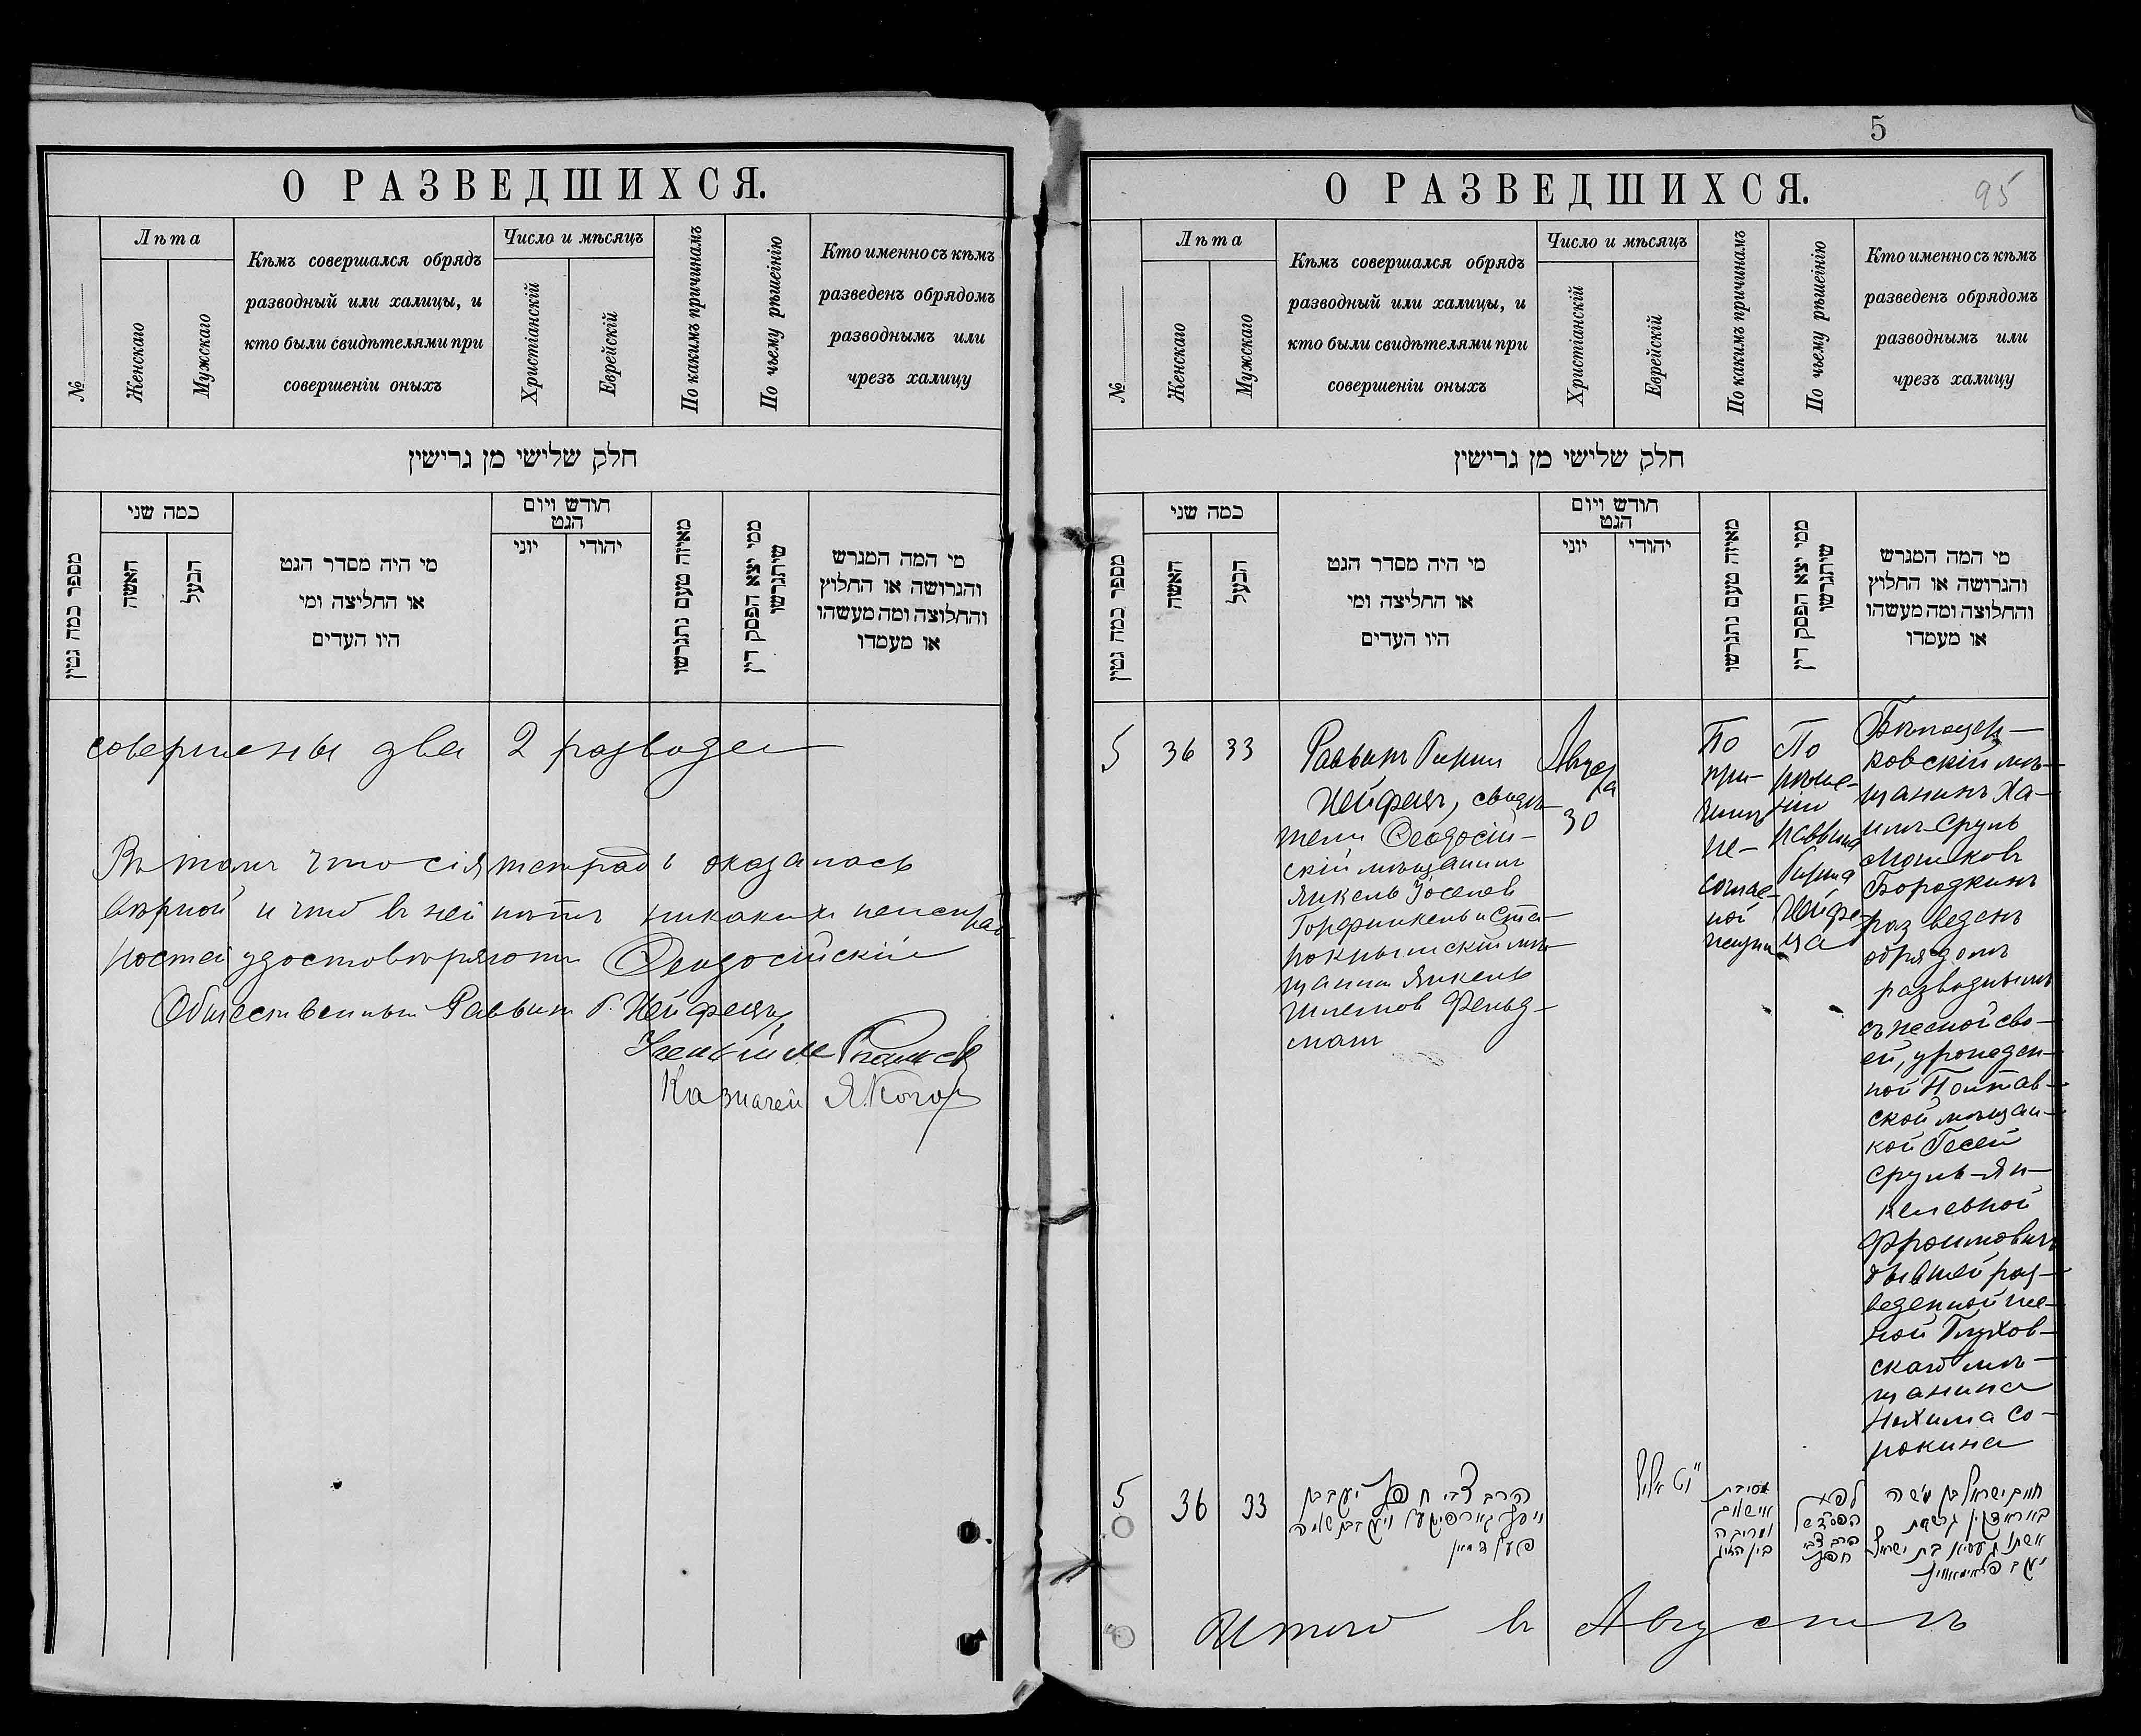 О РАЗВЕДШИХСЯ.
№
Лѣта
Женскаго
Мужскаго
Кѣмъ совершался обрядъ
разводный или халицы, и
кто были свидѣтелями при
совершеніи оныхъ
Число и мѣсяцъ
Христіанскій
Еврейскій
По какимъ причинамъ
По чьему рѣшеінію
Кто именно съ кѣмъ
разведенъ обрядомъ
разводнымъ или
чрезъ халицу
חלק שלישי מן גרישין
מספר כמה גטין
כמה שני
האשה
הבעל
מי היה מסדר הגט
או החליצה ומי
היו העדים
חודש ויום
הגט
יוני
יהודי
מאיזה טעם נתגרשו
ממי יצא הפסק דין
שיתגרשו
מי המה המגרש
והגרושה או החלוץ
והחלוצה ומה מעשהו
או מעמדו
совершены два 2 развода
Въ томъ что сія тетрадь оказалась
вѣрной и что въ ней нѣтъ никакихъ неисправ-
ностей удостовѣряютъ Ѳеодосійскій
Общественный Раввинъ Г. Хейфецъ
Казначей Я. Коган
5
О РАЗВЕДШИХСЯ.
95
№
Лѣта
Женскаго
Мужскаго
Кѣмъ совершался обрядъ
разводный или халицы, и
кто были свидѣтелями при
совершеніи оныхъ
Число и мѣсяцъ
Христіанскій
Еврейскій
По какимъ причинамъ
По чьему рѣшеінію
Кто именно съ кѣмъ
разведенъ обрядомъ
разводнымъ или
чрезъ халицу
חלק שלישי מן גרישין
מספר כמה גטין
כמה שני
האשה
הבעל
מי היה מסדר הגט
או החליצה ומי
היו העדים
חודש ויום
הגט
יוני
יהודי
מאיזה טעם נתגרשו
ממי יצא הפסק דין
שיתגרשו
מי המה המגרש
והגרושה או החלוץ
והחלוצה ומה מעשהו
או מעמדו
5
36
33
Раввинъ Гирша
Хейфецъ, свидѣ-
тели Ѳеодосій-
скій мѣщанинъ
Янкель Іоселев
Горфинкель и Ста-
рокрымскій мѣ-
щанин Янкель
Шлемов Фельд-
ман
Авгус
та
30
По
при-
чинѣ
не-
соглас-
ной
жизни
По
рѣше-
нію
Раввина
Гирша
Хейфе-
ца
ковскій мѣ-
щанинъ Ха-
имъ-Сруль
Мошков
Бородкинъ
разведенъ
обрядомъ
разводнымъ
съ женой сво-
ей, урожден-
ной Полтав-
ской мѣщан-
кой Гесей
Сруль-Ян-
келевной
Фроимовичъ
бывшей раз-
веденной же-
ной Глухов-
скаго мѣ-
щанина
Нохима Со-
рокина
5
36
33
הרב צבי חפץ יעקב בן
יוסף גארפינקעל ויעקב בן שלמה
פעלדמאן
י"ט אלול
מסיבת
אי שלום
ומריבה
בין הזוג
לפי
הפס"ד של
הרב צבי
חפץ
חיים ישראל בן משה
באראדקין גרש את
אשתו געסיא בת ישראל
יעקב פראימאוויץ
Итого въ Августѣ